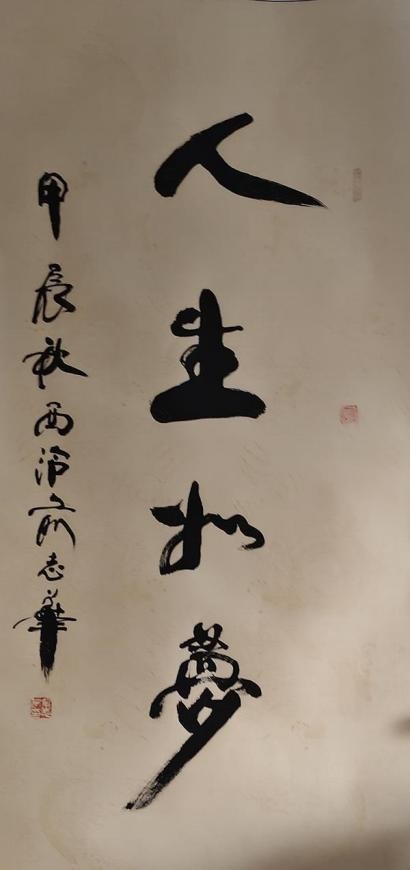 人生如夢
甲辰秋西泠俞志華